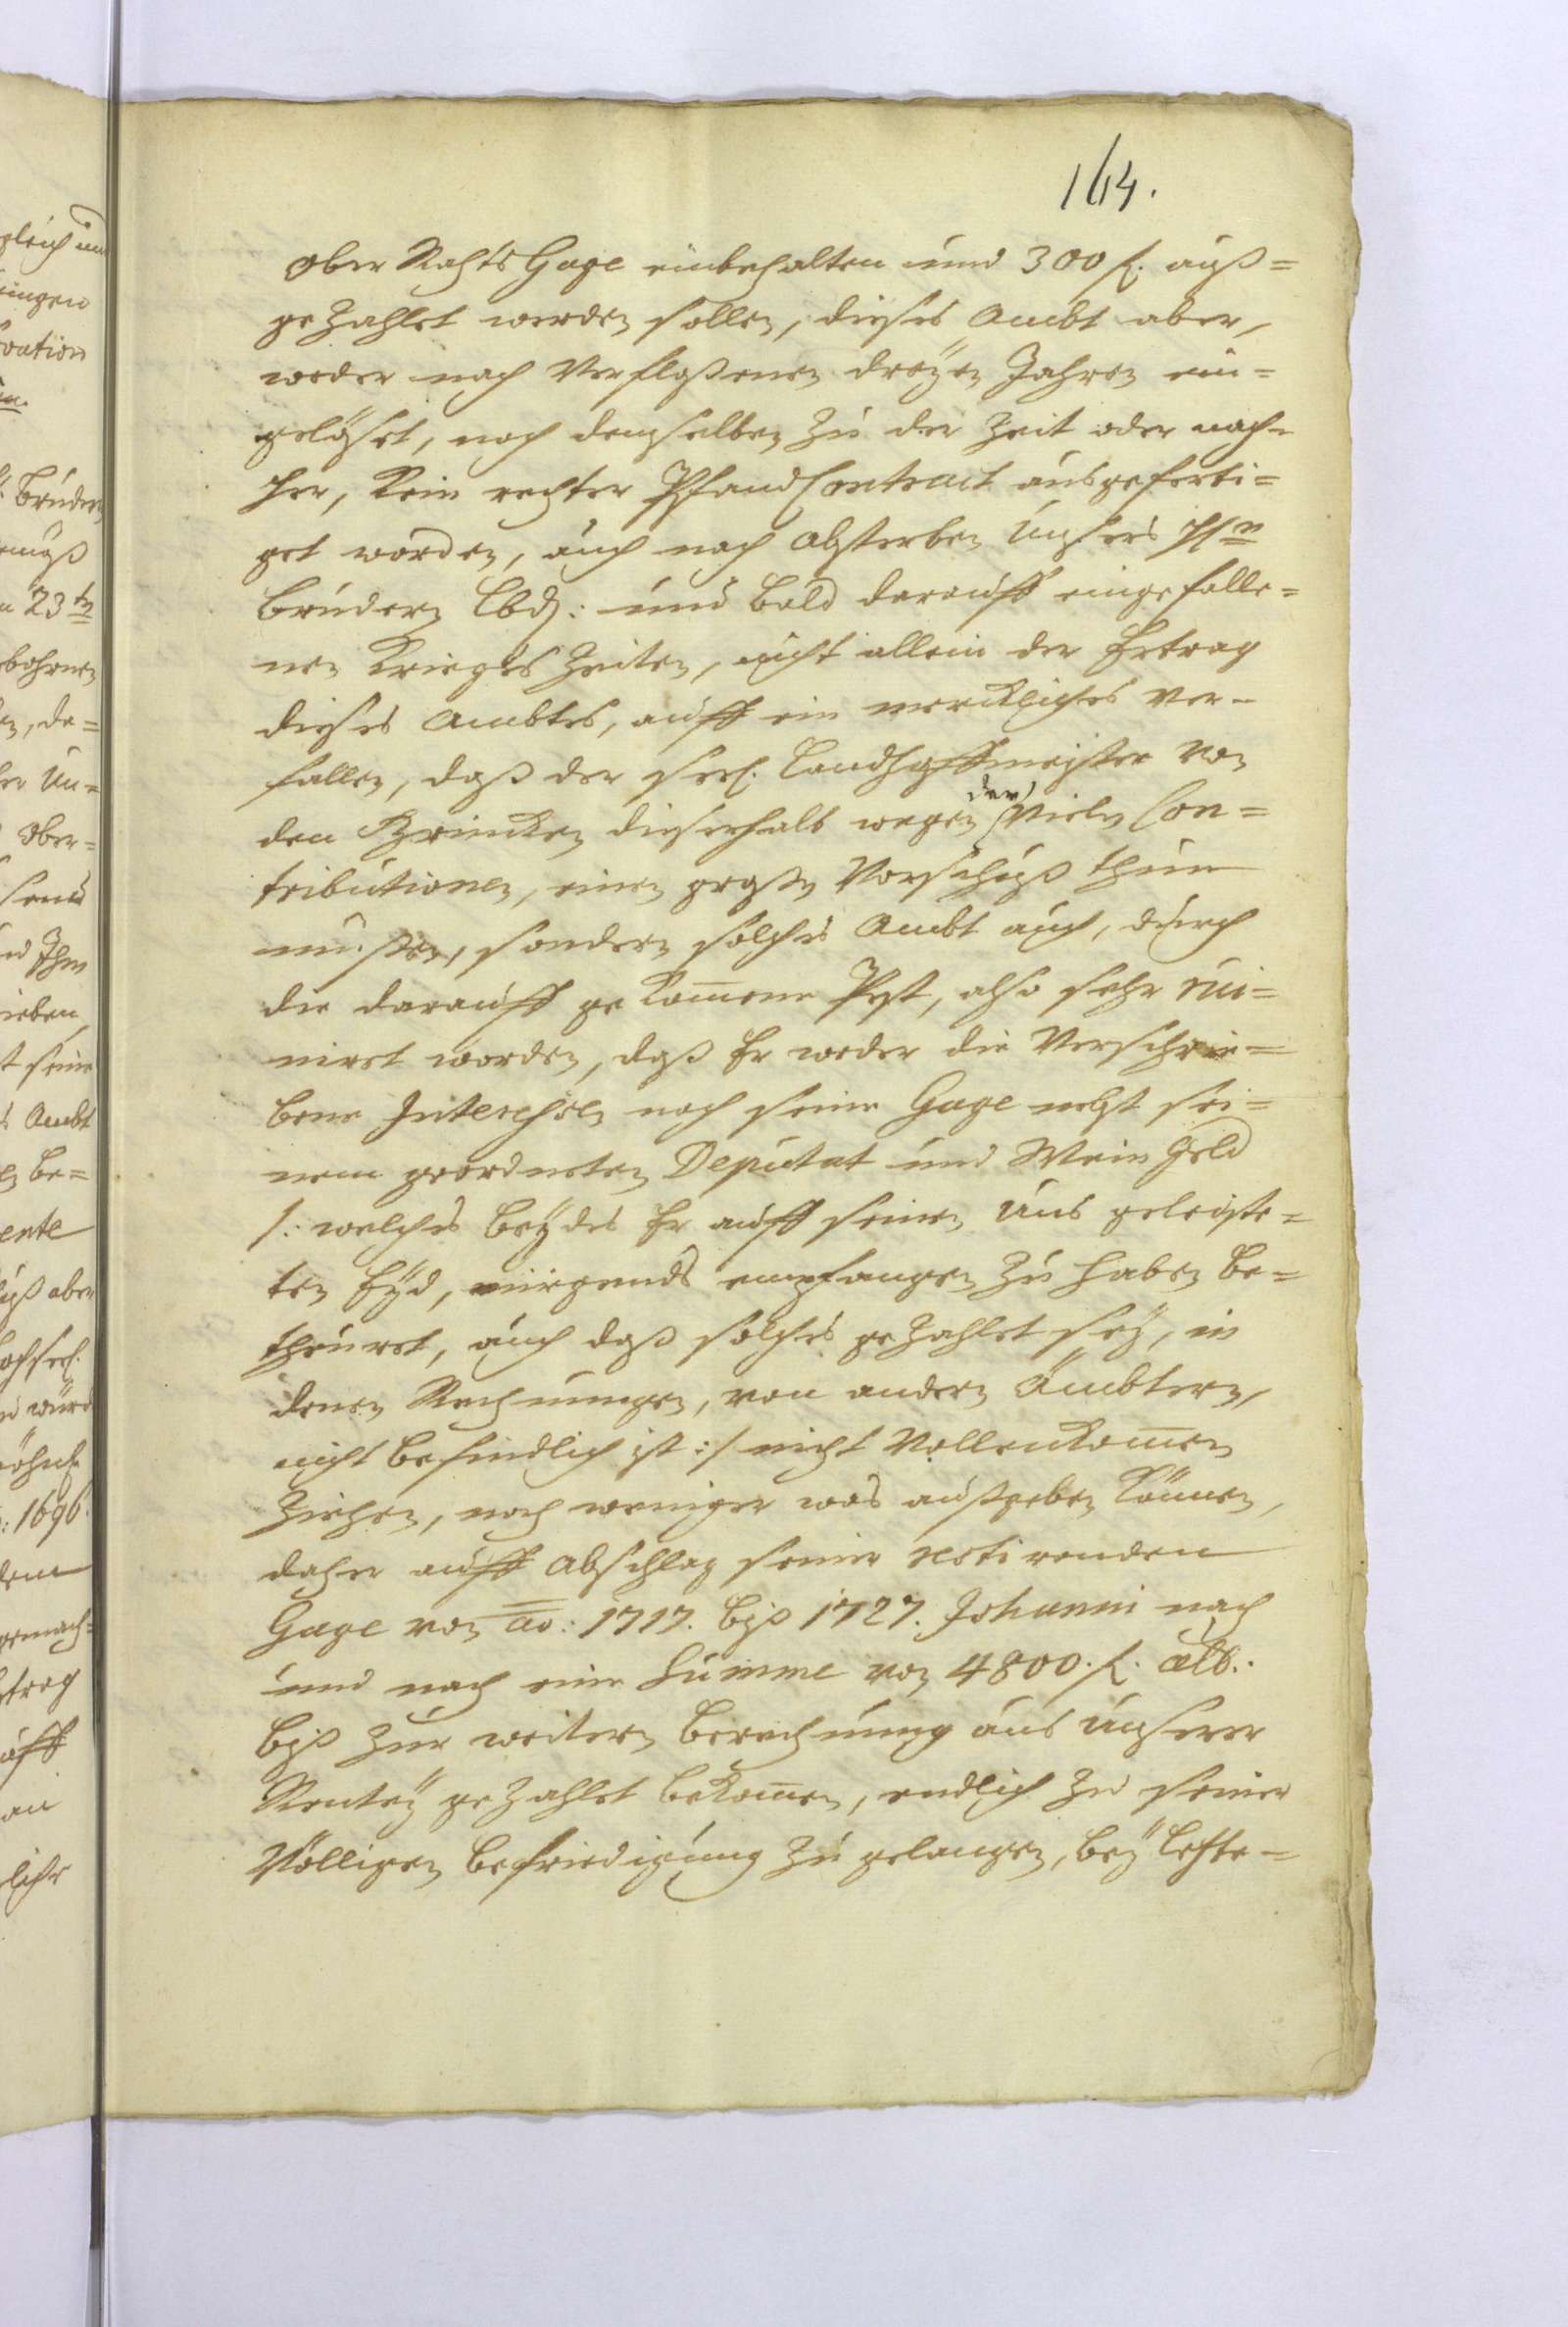 164.
Ober Rahts Gage einbehalten und 300 f. auß=
gezahlet werden sollen, dieses Ambt aber,
weder nach Verfloßenen dreÿen Jahren ein=
gelöset, noch demselben zu der Zeit oder nach=
her, kein rechter Pfand Contract ausgeferti=
get worden, auch nach absterben Unsers
Brudern Lbd: und bald darauff eingefalle=
nen Krieges Zeiten, nicht allein der Ertrag
dieses Ambtes, auff ein merckliches ver=
fallen, daß der seel. Landhoffmeister von
den Brincken dieserhalb wegen der Vielen Con=
tributionen, einen großen Vorschuß thun
müßen, sondern solches Ambt auch, durch
die darauff gekom̄ene Pest, also sehr rui=
niret worden, daß Er weder die Verschrie=
bene Interessen noch seine Gage nebst sei=
nem geordneten Deputat und Wein Geld
/: welches beÿdes Er auff seinen Uns geleiste=
ten Eÿd, nirgends empfangen zu haben be=
theuret, auch daß solches gezahlet seÿ, in
denen Rechnungen, von andern Ämbtern,
nicht befindlich ist :/ nicht Vollenkom̄en
ziehen, noch weniger was außgeben können,
daher auff Abschlag seiner restirenden
Gage von ao: 1717. biß 1727. Johanni nach
und nach eine Summe von 4800. f. alb.
biß zur weitern Berechnung aus Unserer
Renteÿ gezahlet bekom̄en, endlich zu seiner
Völligen Befriedigung zu gelangen, beÿ
gleich
ungen
vation
Brudern
23
bohrnen
da=
Un=
Ober=
Ihm
ieben
seine
Ambt
be=
ente
aber
würd
: 1696.
dem
gemach=
trag
auff
an
liche